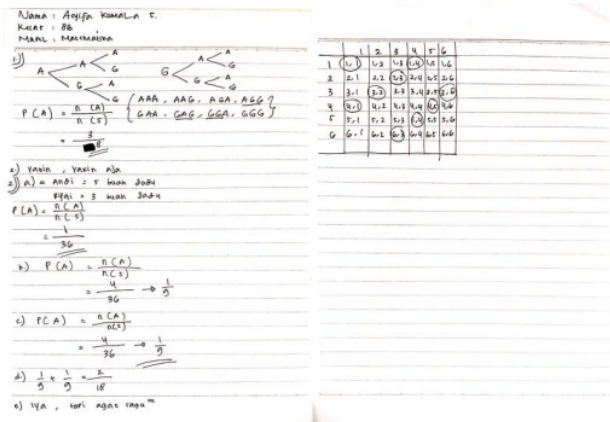 Nama : Asyifa Kumala S.
Kelas : 8G
Mapel : Matematika
1)
A A A
G
G A
G
G A A
G
G A
G
P (A) = n (A) / n (S)
{ AAA, AAG, AGA, AGG
GAA, GAG, GGA, GGG }
= 3 / 8
c) Yakin, Yakin aja
2) a) = Andi = 5 buah dadu
= 3 buah dadu
P (A) = n (A) / n (S)
= 1 / 36
b) P (A) = n (A) / n (S)
= 4 / 36 → 1 / 9
c) P (A) = n (A) / n(S)
= 4 / 36 → 1 / 9
d) 1 / 9 + 1 / 9 = 2 / 18
e) Iya, tapi agak ragu"
1 2 3 4 5 6
1 1,1 1,2 1,3 1,4 1,5 1,6
2 2,1 2,2 2,3 2,4 2,5 2,6
3 3,1 3,2 3,3 3,4 3,5 3,6
4 4,1 4,2 4,3 4,4 4,5 4,6
5 5,1 5,2 5,3 5,4 5,5 5,6
6 6,1 6,2 6,3 6,4 6,5 6,6